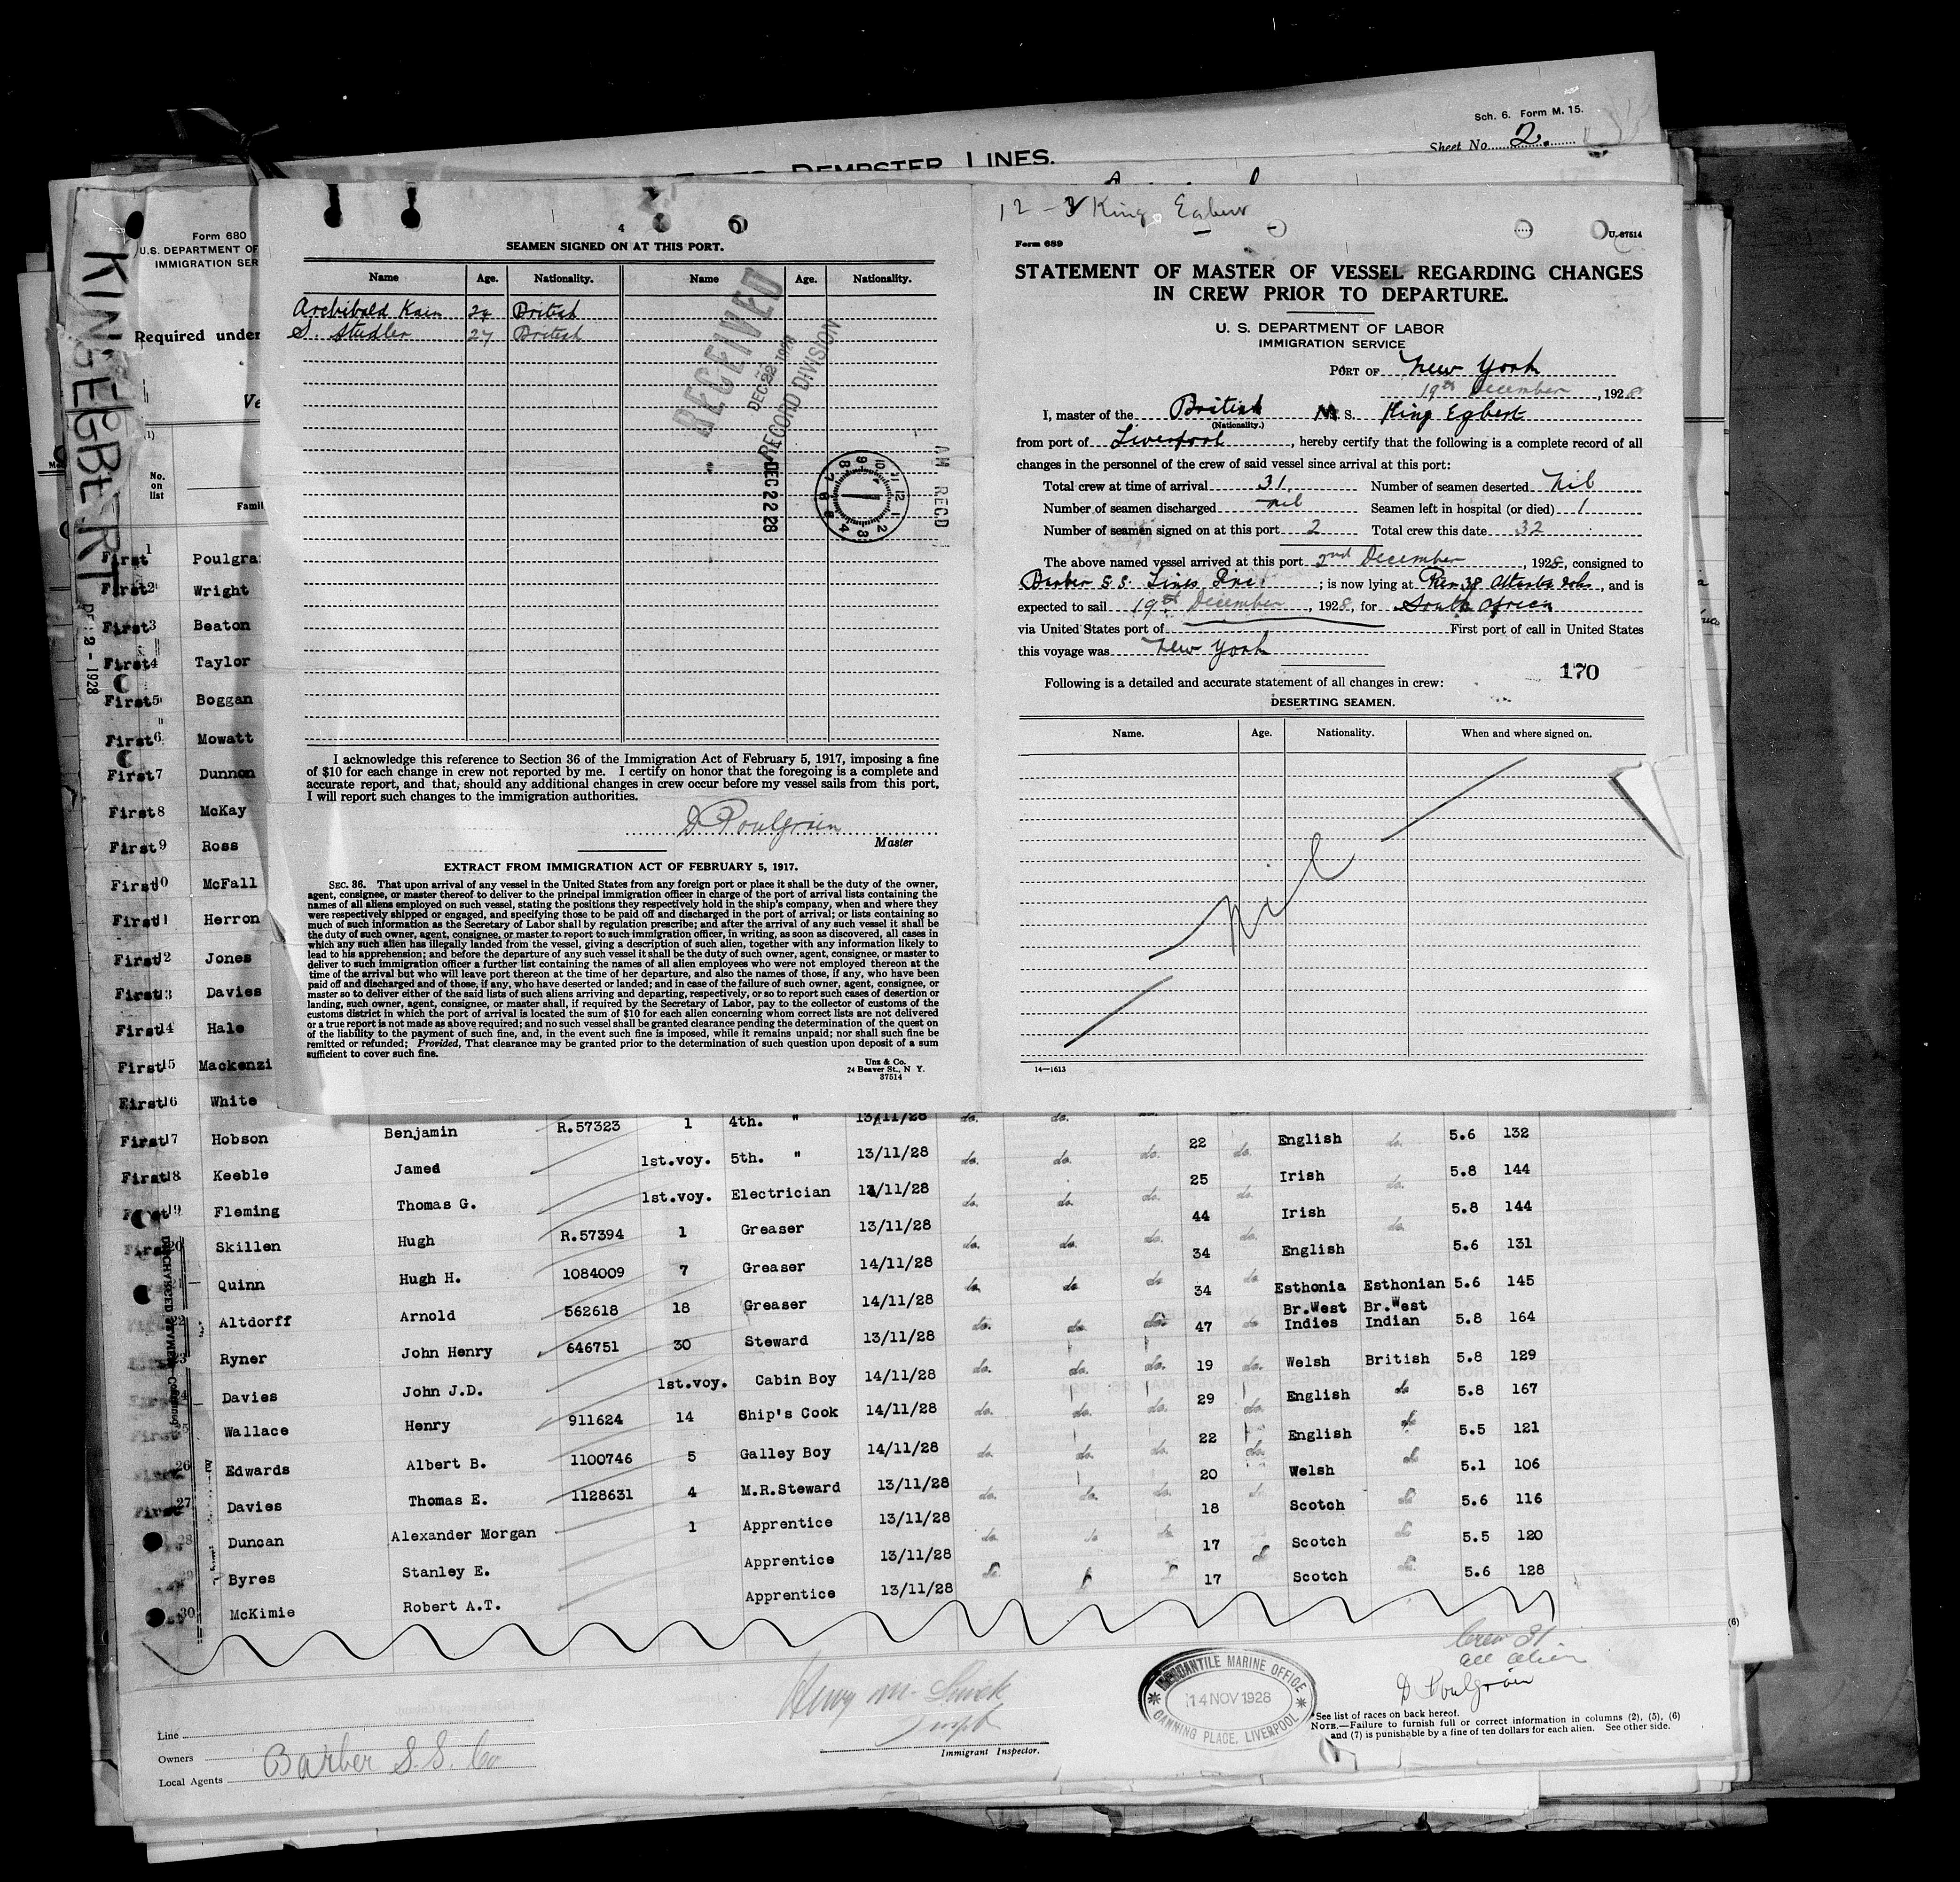 Sch. 6. Form M. 15.
Sheet No. 2.
DEMPSTER LINES.
KING EGBERT
2 - 1928
Form 680
U.S. DEPARTMENT OF
IMMIGRATION SER
Required under
Ve
(1)
No.
on
list
Famil
4
SEAMEN SIGNED ON AT THIS PORT.
Name Age. Nationality. Name Age. Nationality.
Archibald Kain 24 British
S. Studler 27 British
RECEIVED
DEC 22 1928
RECORD DIVISION
DEC 22 28
AM REC'D
I acknowledge this reference to Section 36 of the Immigration Act of February 5, 1917, imposing a fine
of $10 for each change in crew not reported by me. I certify on honor that the foregoing is a complete and
accurate report, and that, should any additional changes in crew occur before my vessel sails from this port,
I will report such changes to the immigration authorities.
D Poulgrain
Master
EXTRACT FROM IMMIGRATION ACT OF FEBRUARY 5, 1917.
SEC. 36. That upon arrival of any vessel in the United States from any foreign port or place it shall be the duty of the owner,
agent, consignee, or master thereof to deliver to the principal immigration officer in charge of the port of arrival lists containing the
names of all aliens employed on such vessel, stating the positions they respectively hold in the ship's company, when and where they
were respectively shipped or engaged, and specifying those to be paid off and discharged in the port of arrival; or lists containing so
much of such information as the Secretary of Labor shall by regulation prescribe; and after the arrival of any such vessel it shall be
the duty of such owner, agent, consignee, or master to report to such immigration officer, in writing, as soon as discovered, all cases in
which any such alien has illegally landed from the vessel, giving a description of such alien, together with any information likely to
lead to his apprehension; and before the departure of any such vessel it shall be the duty of such owner, agent, consignee, or master to
deliver to such immigration officer a further list containing the names of all alien employees who were not employed thereon at the
time of the arrival but who will leave port thereon at the time of her departure, and also the names of those, if any, who have been
paid off and discharged and of those, if any, who have deserted or landed; and in case of the failure of such owner, agent, consignee, or
master so to deliver either of the said lists of such aliens arriving and departing, respectively, or so to report such cases of desertion or
landing, such owner, agent, consignee, or master shall, if required by the Secretary of Labor, pay to the collector of customs of the
customs district in which the port of arrival is located the sum of $10 for each alien concerning whom correct lists are not delivered
or a true report is not made as above required; and no such vessel shall be granted clearance pending the determination of the quest on
of the liability to the payment of such fine, and, in the event such fine is imposed, while it remains unpaid; nor shall such fine be
remitted or refunded; Provided, That clearance may be granted prior to the determination of such question upon deposit of a sum
sufficient to cover such fine.
Unz & Co.
24 Beaver St., N Y.
37514
12 - 2 King Egbert
Form 689
U.-37514
STATEMENT OF MASTER OF VESSEL REGARDING CHANGES
IN CREW PRIOR TO DEPARTURE.
U. S. DEPARTMENT OF LABOR
IMMIGRATION SERVICE
PORT OF New York
19th December, 1928
I, master of the British M. S. King Egbert
(Nationality.)
from port of Liverpool, hereby certify that the following is a complete record of all
changes in the personnel of the crew of said vessel since arrival at this port:
Total crew at time of arrival 31 Number of seamen deserted Nil
Number of seamen discharged nil Seamen left in hospital (or died) 1
Number of seamen signed on at this port 2 Total crew this date 32
The above named vessel arrived at this port 2nd December, 1928, consigned to
Barber S.S. Lines Inc.; is now lying at Pier 38 , and is
expected to sail 19th December, 1928, for South Africa
via United States port of First port of call in United States
this voyage was New York
170
Following is a detailed and accurate statement of all changes in crew:
DESERTING SEAMEN.
Name. Age. Nationality. When and where signed on.
Nil
14—1613
First 1 Poulgra
First 2 Wright
First 3 Beaton
First 4 Taylor
First 5 Boggan
First 6 Mowatt
First 7 Dunnon
First 8 McKay
First 9 Ross
First 10 McFall
First 11 Herron
First 12 Jones
First 13 Davies
First 14 Hale
First 15 Mackenzi
First 16 White
First 17 Hobson Benjamin R.57323 1 4th. " 13/11/28 do. do. do. 22 do. English do. 5.6 132
First 18 Keeble James 1st.voy. 5th. " 13/11/28 do. do. do. 25 do. Irish do. 5.8 144
First 19 Fleming Thomas G. 1st.voy. Electrician 13/11/28 do. do. do. 44 do. Irish do. 5.8 144
First 20 Skillen Hugh R.57394 1 Greaser 13/11/28 do. do. do. 34 do. English 5.6 131
21 Quinn Hugh H. 1084009 7 Greaser 14/11/28 do. do. do. 34 do. Esthonia Esthonian 5.6 145
22 Altdorff Arnold 562618 18 Greaser 14/11/28 do. do. do. 47 do. Br.West Indies Br.West Indian 5.8 164
23 Ryner John Henry 646751 30 Steward 13/11/28 do. do. do. 19 do. Welsh British 5.8 129
24 Davies John J.D. 1st.voy. Cabin Boy 14/11/28 do. do. do. 29 do. English do 5.8 167
25 Wallace Henry 911624 14 Ship's Cook 14/11/28 do. do. do. 22 do. English do 5.5 121
26 Edwards Albert B. 1100746 5 Galley Boy 14/11/28 do. do. do. 20 Welsh do 5.1 106
First 27 Davies Thomas E. 1128631 4 M.R.Steward 13/11/28 do. do. do. 18 Scotch do 5.6 116
28 Duncan Alexander Morgan 1 Apprentice 13/11/28 do. do do 17 do Scotch do 5.5 120
29 Byres Stanley E. Apprentice 13/11/28 do. 17 Scotch do. 5.6 128
30 McKimie Robert A.T. Apprentice 13/11/28
Crew 31
all alien
D Poulgrain
Line
Owners
Local Agents Barber S.S. Co
Immigrant Inspector.
MERCANTILE MARINE OFFICE
14 NOV 1928
CANNING PLACE, LIVERPOOL
*See list of races on back hereof.
NOTE.—Failure to furnish full or correct information in columns (2), (5), (6)
and (7) is punishable by a fine of ten dollars for each alien. See other side.
(6)